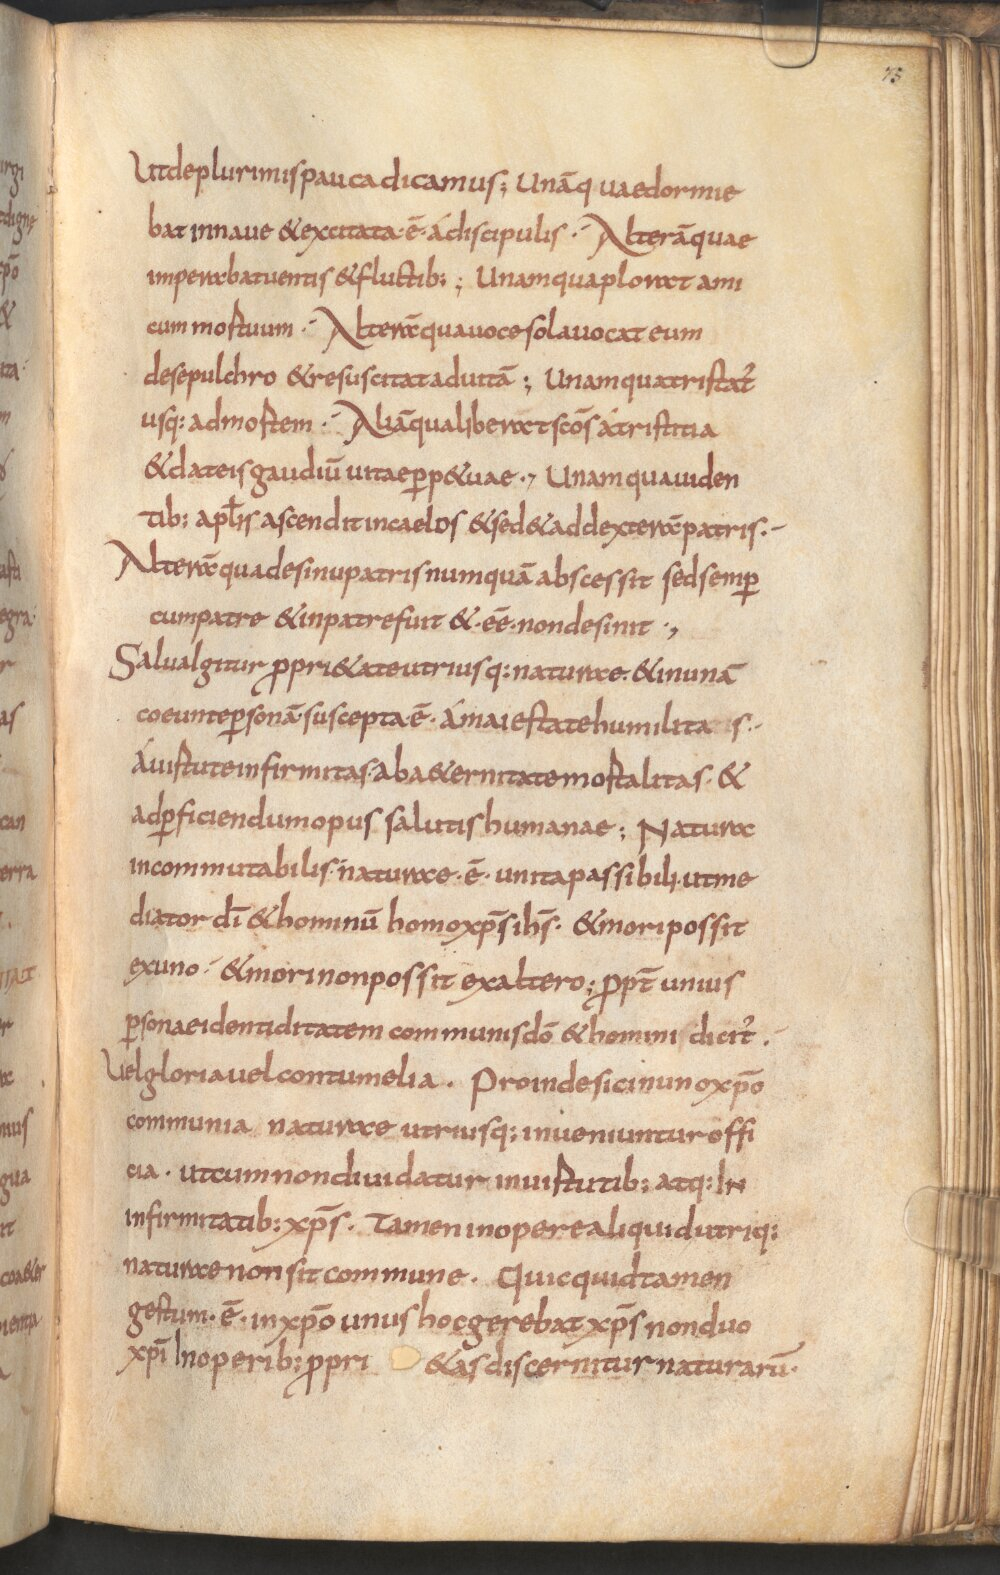 75
Ut de plurimis pauca dicamus; Unā quae dormie
bat in naue & excitata·ē· á discipulis · Alterā quae
imperabat uentis & fluctib:; Unam qua plorat ami
cum mortuum · Alterā qua uoce sola uocat eum
de sepulchro & resuscitat ad uitā; Unam qua tristat᷑
usq: ad mortem · Aliā qua liberat scōs á tristitia
& dat eis gaudiū uitae ꝑp&uae ·, Unam qua uiden
tib: apl̄is ascendit in caelos & sed& ad dexterā patris ·
Alterā qua de sinu patris numquā abscessit sed semꝑ
cum patre & in patre fuit & ·eē· non desinit ·,
Salua Igitur ꝓpri&ate utriusq: naturae · & in unā
coeunte ꝑsonā · suscepta ē · Á maiestate humilitatis ·
Á uirtute infirmitas · ab a&ernitate mortalitas · &
ad ꝑficiendum opus salutis humanae; Natura
incommutabilis · naturae · ē · unita passibili · ut me
diator dī & hominū homo xp̄s ih̄s · & mori possit
ex uno · & mori non possit ex altero; ꝓpt̄ unius
ꝑsonae identiditatem communis dō & homini dicit᷑ ·
Uel gloria uel contumelia · Proinde sic in uno xp̄o
communia naturae utriusq; inueniuntur offi
cia · ut cum non diuidatur in uirtutib: atq: In
infirmitatib: xp̄s · Tamen in opere aliquid utriq:
naturae non sit commune · Quicquid tamen
gestum · ē · in xp̄o unus hoc gerebat xp̄s non duo
xp̄i In operib: ꝓpri &as discernitur naturarū ·